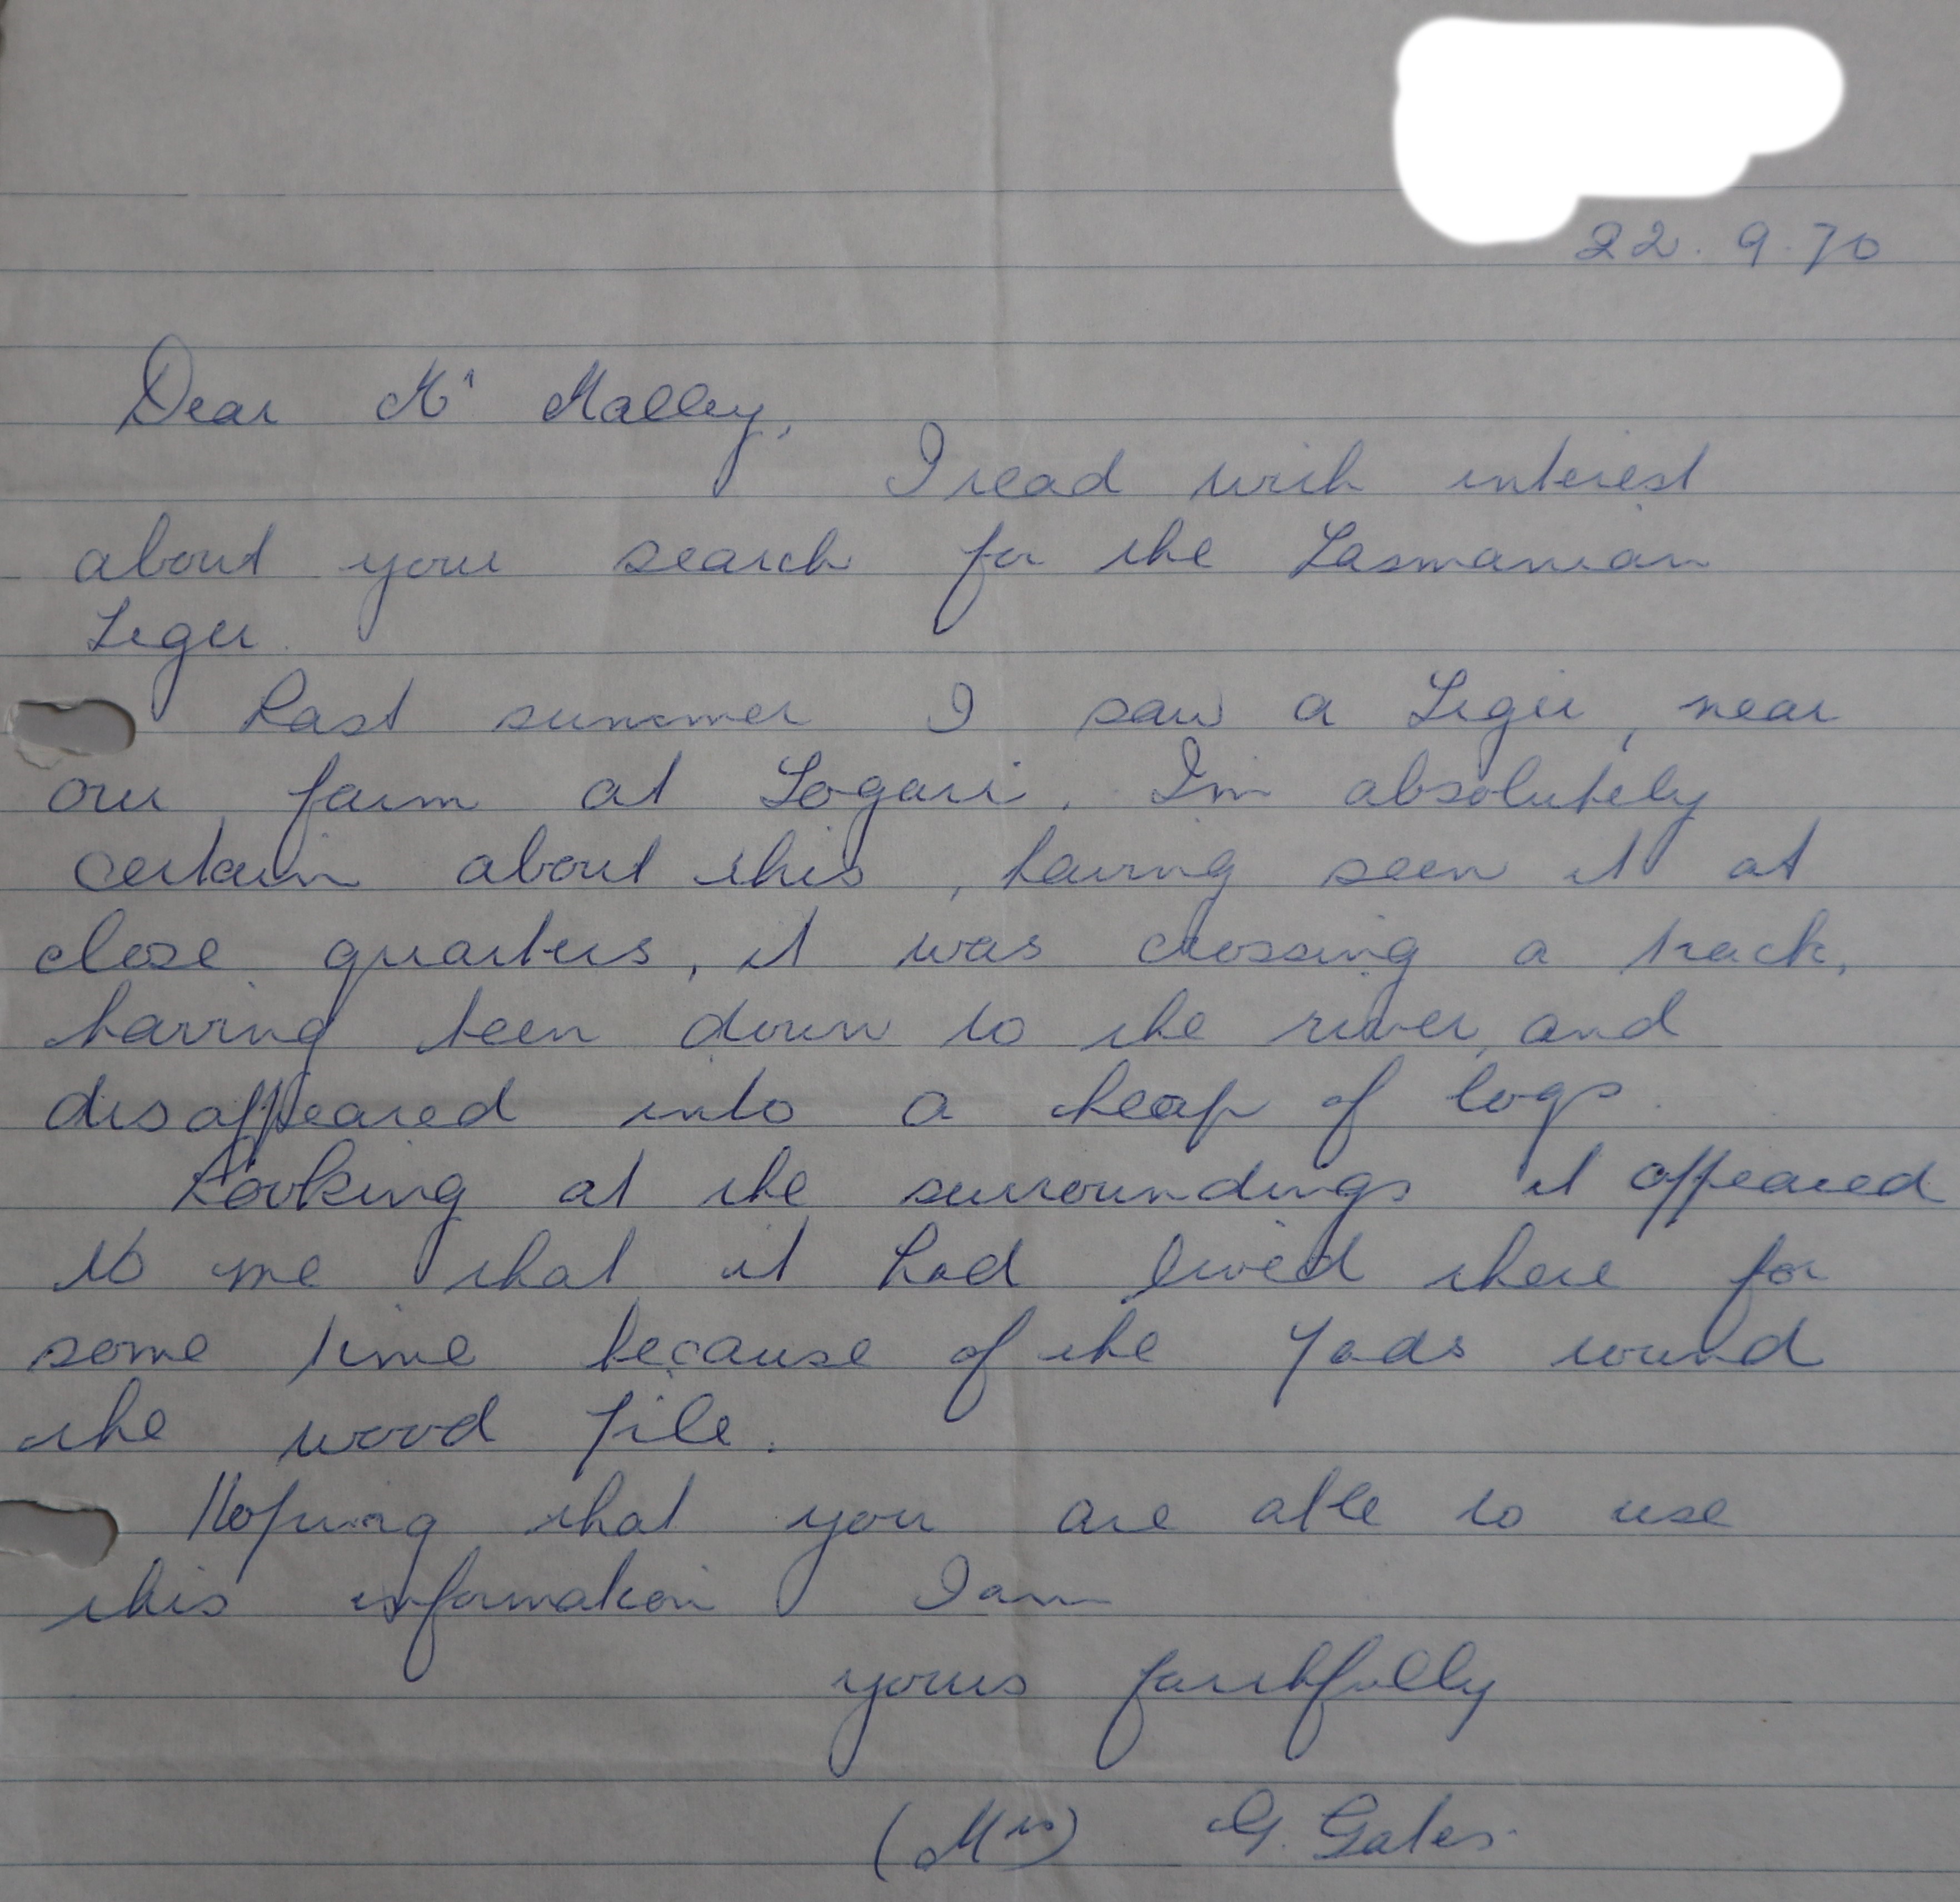 22.9.70
Dear Mr Malley,
I read with interest
about your search for the Tasmanian
Tiger.
Last summer I saw a Tiger, near
our farm at Togari. I'm absolutely
certain about this, having seen it at
close quarters, it was crossing a track,
having been down to the river, and
disappeared into a heap of logs.
Looking at the surroundings it appeared
to me that it had lived there for
some time because of the pads round
the wood pile.
Hoping that you are able to use
this information I am
yours faithfully
(Mrs) G. Gales.